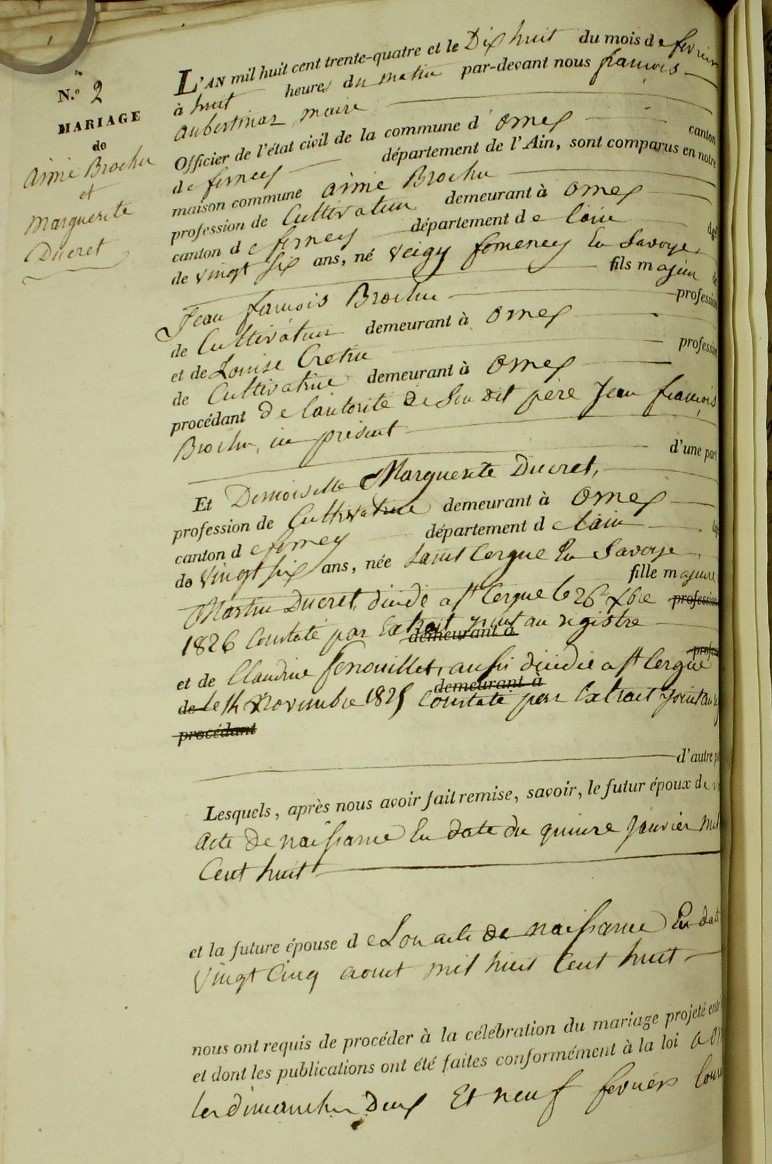 N.o 2
MARIAGE
de
Aimé Brochu
et
Marguerite
Ducret
L'AN mil huit cent trente-quatre et le Dix huit du mois de fevrier
à huit heures du matin par-devant nous françois
aubertinaz maire
Officier de l'état civil de la commune d' Ornex canton
de ferney département de l'Ain, sont comparus en notre
maison commune aimé Brochu
profession de Cultivateur demeurant à Ornex
canton de ferney département de l'ain âgé
de vingt six ans, né veigy fomenex En Savoye,
fils majeur de
Jean françois Brochu profession
de Cultivateur demeurant à Ornex
et de Louise Cretin profession
de Cultivatrice demeurant à Ornex
procédant de l'autorité de Son dit père Jean françois
Brochu, ici présent
d'une part
Et Demoiselle Marguerite Ducret,
profession de Cultivatrice demeurant à Ornex
canton de ferney département de l'ain
de vingt six ans, née Saint Cergue En Savoye,
fille majeure
Martin Ducret, dicédé a St Cergue le 26 xbre profession
1826 Constaté par Extrait joint au registre
demeurant à
et de Claudine fenouillet, aussi dicédée a St Cergue
de Le 14 Novembre 1825 Constaté par Extrait joint au
demeurant à
procédant
d'autre part
Lesquels, après nous avoir fait remise, savoir, le futur époux de
acte de naissance En date du quinze Janvier mil
Cent huit
et la future épouse de Son acte de naissance En date
vingt Cinq aout mil huit Cent huit
nous ont requis de procéder à la célébration du mariage projeté entre
et dont les publications ont été faites conformément à la loi a
les dimanches Deux Et neuf fevriers